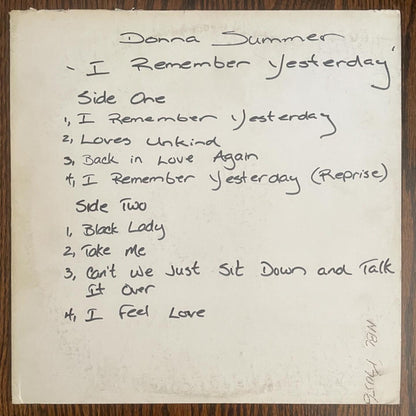 Donna Summer
- I Remember Yesterday'
Side One
1, I Remember Yesterday
2, Loves Unkind
3, Back in Love Again
4, I Remember Yesterday (Reprise)
Side Two
1, Black Lady
2, Take Me
3, Can't We Just Sit Down and Talk
It Over
4, I Feel Love